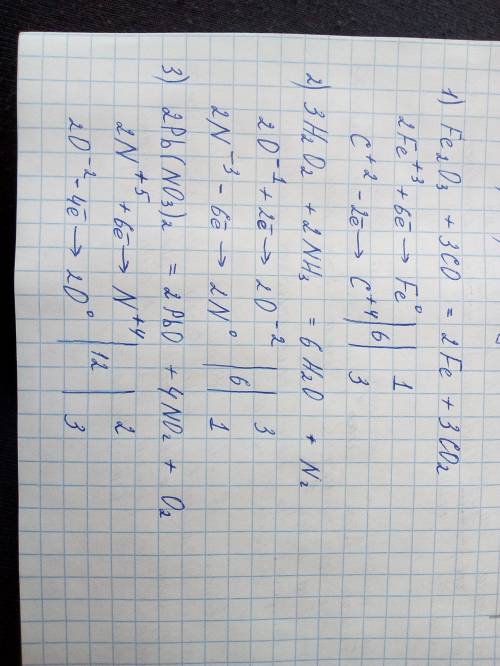 1) Fe₂O₃ + 3CO = 2Fe + 3CO₂
2Fe⁺³ + 6ē → Fe⁰ | | 1
C⁺² - 2ē → C⁺⁴ | 6 | 3
2) 3H₂O₂ + 2NH₃ = 6H₂O + N₂
2O⁻¹ + 2ē → 2O⁻² | | 3
2N⁻³ - 6ē → 2N⁰ | 6 | 1
3) 2Pb(NO₃)₂ = 2PbO + 4NO₂ + O₂
2N⁺⁵ + 6ē → N⁺⁴ | 12 | 2
2O⁻² - 4ē → 2O⁰ | | 3